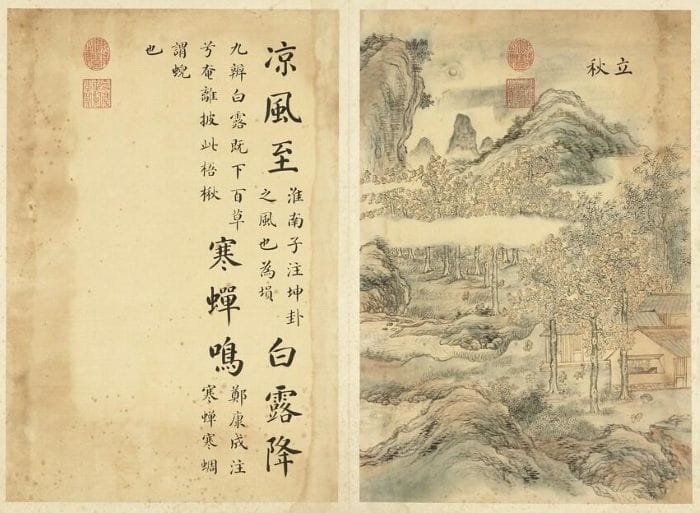 立秋
凉風至
淮南子注坤卦
之風也為塤
白露降
九辨白露既下百草
兮奄離披此梧楸
寒蟬鳴
鄭康成注
寒蟬寒蜩
謂蜺
也